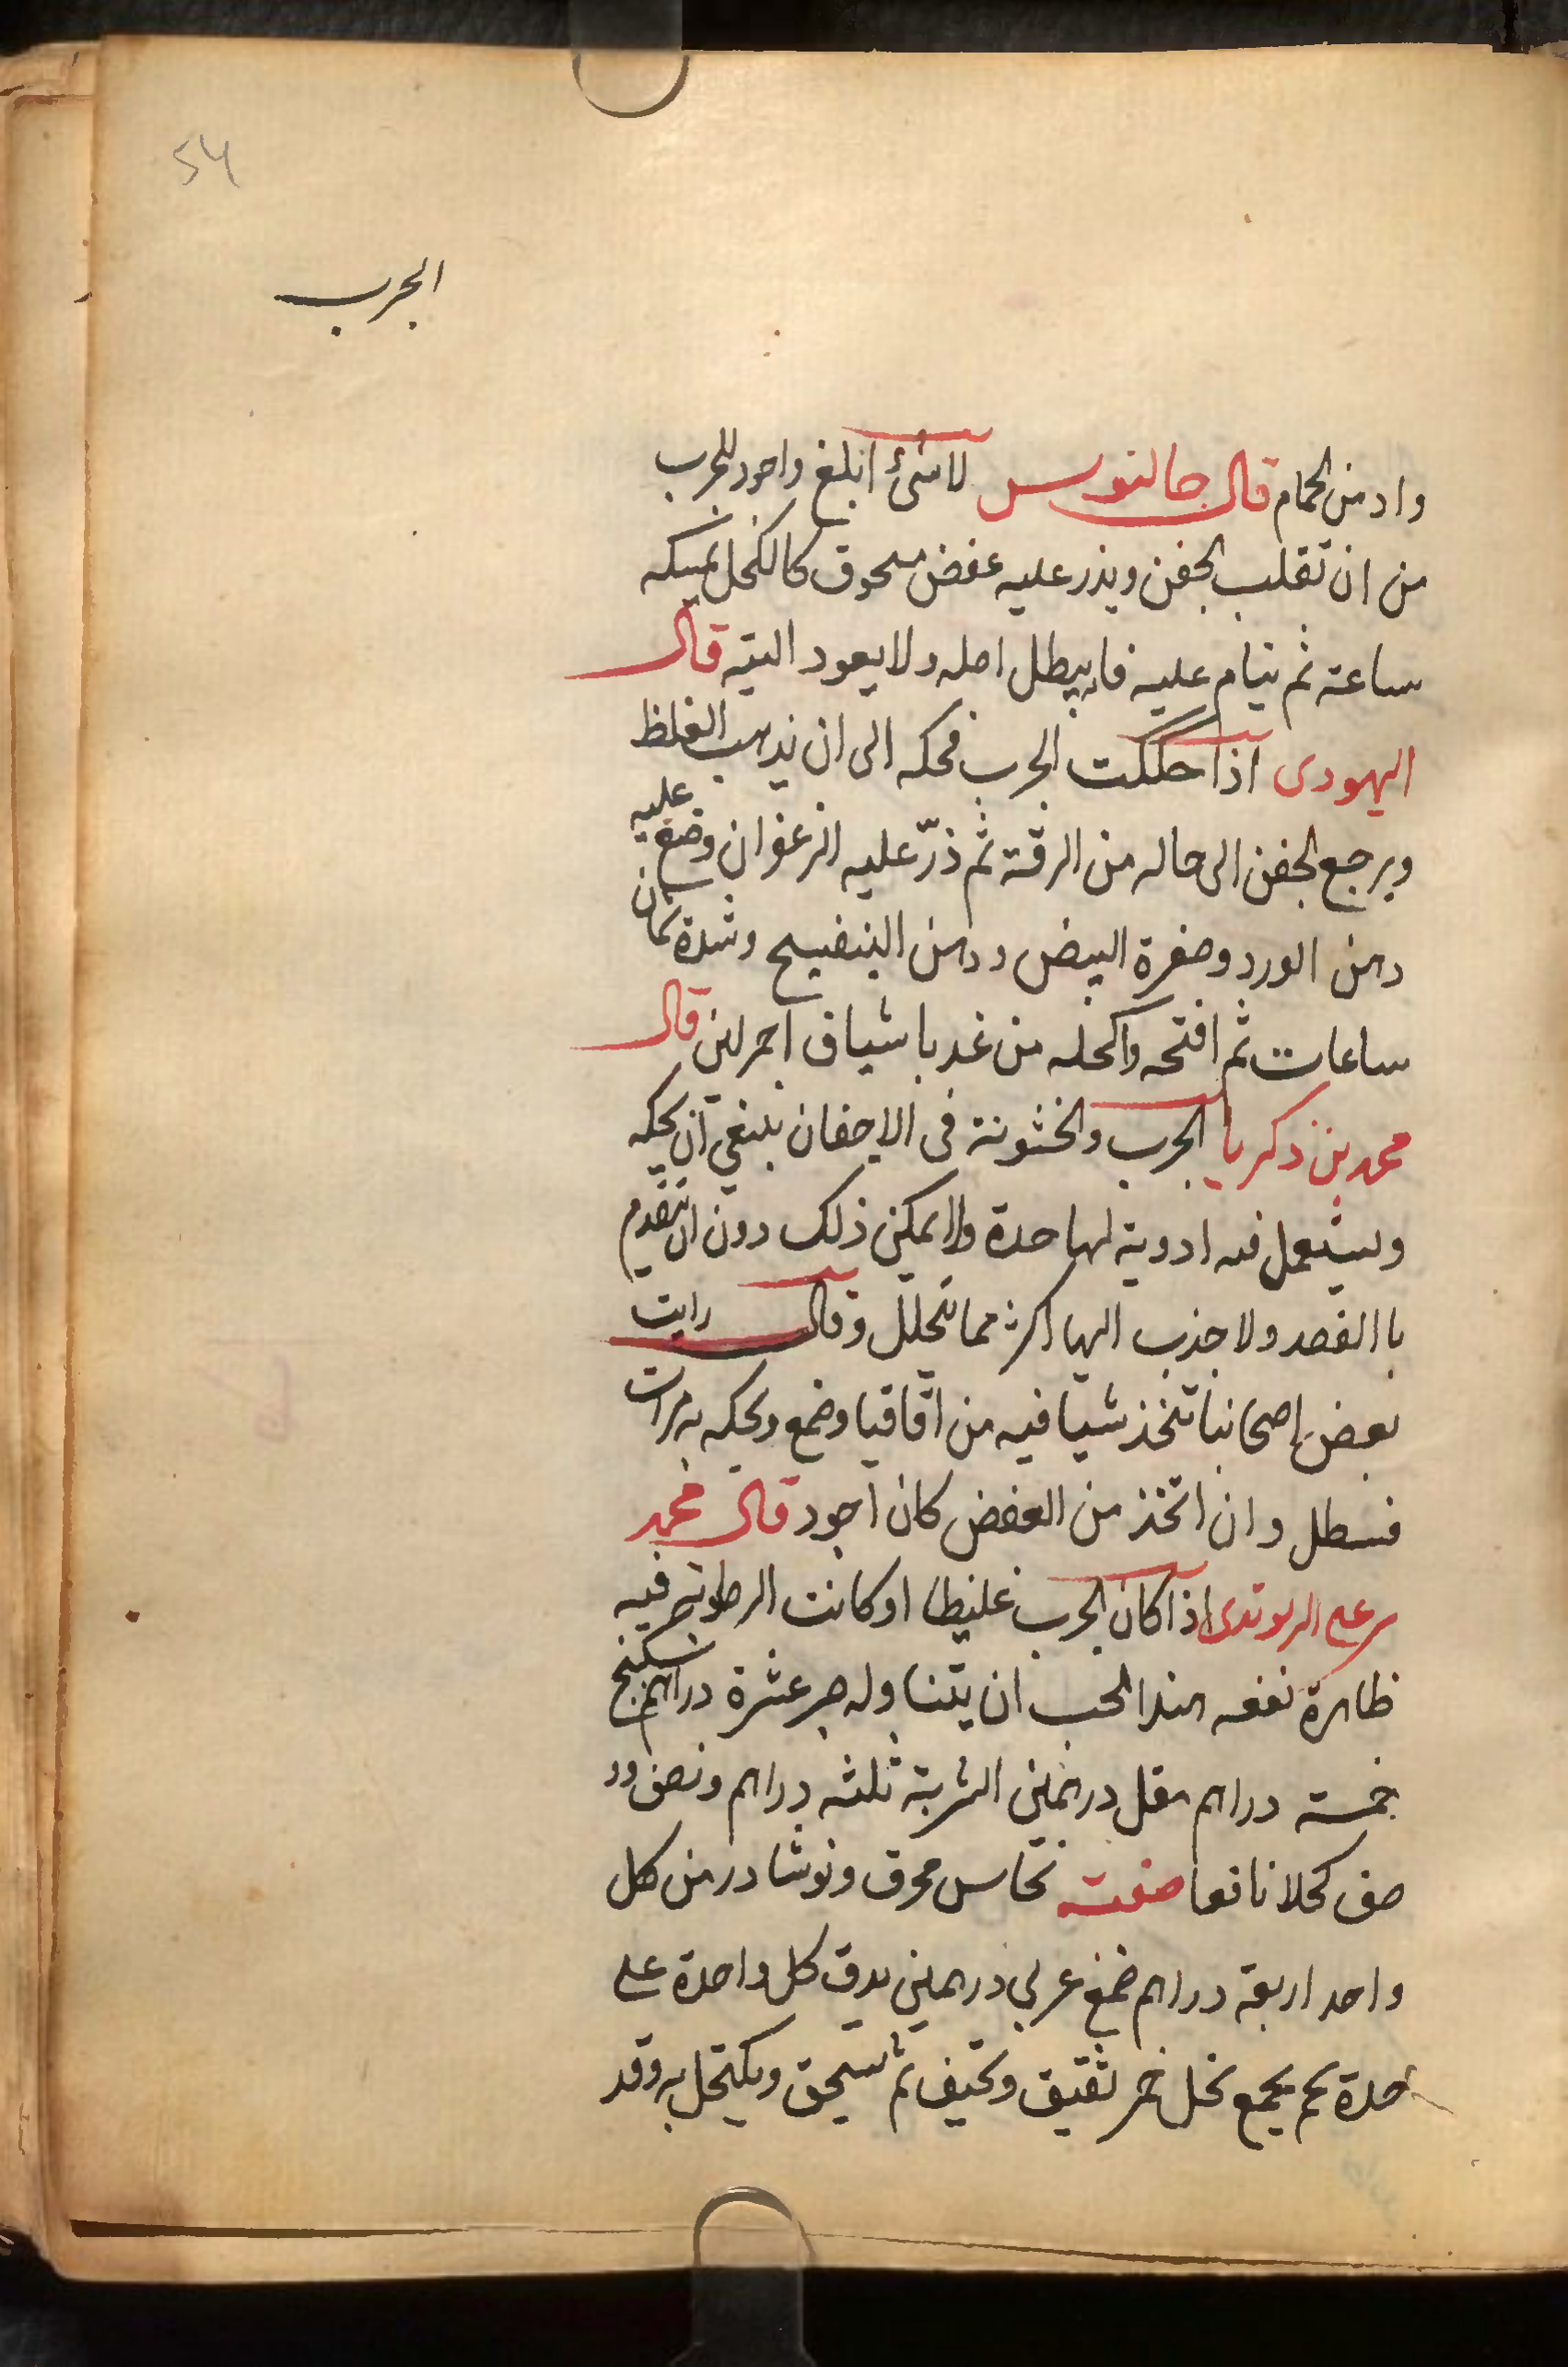 54
الجرب
وادمن الحمام قال جالنوس لا شئ ابلغ واجود للجرب
من ان تقلب الجفن ويذر عليه عفض مسحوق كالكحل يمسكه
ساعة ثم ينام عليه فانه يبطل اصله ولا يعود البتة قال
اليهودى اذا حككت الجرب فحكه الى ان يذهب الغلظ
ويرجع الجفن الى حاله من الرقة ثم ذرّ عليه الزعفران وضع عليه
دهن الورد وصفرة البيض ودهن البنفسج وشدة ثمان
ساعات ثم افتحه واكحله من غد باشياف احمر لين قال
محمد بن زكريا الجرب والخشونة فى الاجفان ينبغي ان يحكه
وليستعمل فيه ادوية لها حدة ولا يمكن ذلك دون ان تتقدم
باالفصد ولا جذب اليها اكثر مما تحلل وقال رايت
بعض اصحابنا تتخذ شيافيه من اقاقيا وضمغ ويحكه به مرات
فيبطل وان اتخذ من العفض كان اجود قال محمد
اذا كان الجرب غليظا او كانت الرطوبة فيه
ظاهرة نفعه هذا الحب ان يتناوله صبر عشرة دراهم سكبينج
خمسة دراهم مقل درهمين الشربة ثلثه دراهم ونصف ور
صف كحلا نافعا صفته نحاس محرق ونوشادر من كل
واحد اربعة دراهم ضمغ عربي درهمين يدق كل واحدة على
حدة ثم يجمع بخل خمر ثقيق وتجيف ثم تسحق ويكتحل به وقد